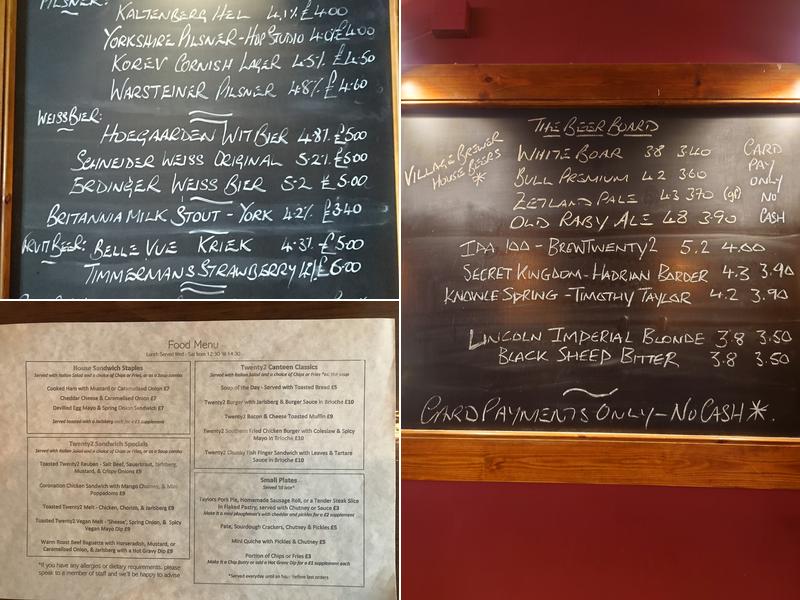 PILSNER:
KALTENBERG HEL 4.1% £4.00
YORKSHIRE PILSNER-HOP STUDIO 4.0% £4.00
KOREV CORNISH LAGER 4.5% £4.50
WARSTEINER PILSNER 4.8% £4.60
WEISSBIER:
HOEGAARDEN WIT BIER 4.8% £5.00
SCHNEIDER WEISS ORIGINAL 5.2% £6.00
ERDINGER WEISS BIER 5.2 £5.00
BRITANNIA MILK STOUT - YORK 4.2% £3.40
FRUIT BEER: BELLE VUE KRIEK 4.3% £5.00
TIMMERMANS STRAWBERRY £6.00
THE BEER BOARD
VILLAGE BREWER
HOUSE BEERS
*
WHITE BOAR 3.8 3.40
BULL PREMIUM 4.2 3.60
ZETLAND PALE 4.3 3.70 (gf)
OLD RABY ALE 4.8 3.90
CARD
PAY
ONLY
NO
CASH
IPA 100 - BREWTWENTY2 5.2 4.00
SECRET KINGDOM - HADRIAN BORDER 4.3 3.90
KNOWLE SPRING - TIMOTHY TAYLOR 4.2 3.90
LINCOLN IMPERIAL BLONDE 3.8 3.50
BLACK SHEEP BITTER 3.8 3.50
CARD PAYMENTS ONLY - NO CASH *.
Food Menu
Lunch Served Wed - Sat from 12:30 'til 14:30
House Sandwich Staples
Served with Italian Salad and a choice of Chips or Fries, or as a Soup combo
Cooked Ham with Mustard or Caramelised Onion £7
Cheddar Cheese & Caramelised Onion £7
Devilled Egg Mayo & Spring Onion Sandwich £7
Served toasted with a Jarlsberg melt for a £1 supplement
Twenty2 Sandwich Specials
Served with Italian Salad and a choice of Chips or Fries, or as a Soup combo
Toasted Twenty2 Reuben - Salt Beef, Sauerkraut, Jarlsberg,
Mustard, & Crispy Onions £9
Coronation Chicken Sandwich with Mango Chutney, & Mini
Poppadoms £9
Toasted Twenty2 Melt - Chicken, Chorizo, & Jarlsberg £9
Toasted Twenty2 Vegan Melt - 'Sheese', Spring Onion, & Spicy
Vegan Mayo Dip £9
Warm Roast Beef Baguette with Horseradish, Mustard, or
Caramelised Onion, & Jarlsberg with a Hot Gravy Dip £9
*If you have any allergies or dietary requirements, please
speak to a member of staff and we'll be happy to advise
Twenty2 Canteen Classics
Served with Italian Salad and a choice of Chips or Fries *ex. the soup
Soup of the Day - Served with Toasted Bread £5
Twenty2 Burger with Jarlsberg & Burger Sauce in Brioche £10
Twenty2 Bacon & Cheese Toasted Muffin £9
Twenty2 Southern Fried Chicken Burger with Coleslaw & Spicy
Mayo in Brioche £10
Twenty2 Chunky Fish Finger Sandwich with Leaves & Tartare
Sauce in Brioche £10
Small Plates
Served 'til late*
Taylors Pork Pie, Homemade Sausage Roll, or a Tender Steak Slice
in Flaked Pastry, served with Chutney or Sauce £3
Make it a mini ploughman's with cheddar and pickles for a £2 supplement
Pate, Sourdough Crackers, Chutney & Pickles £5
Mini Quiche with Pickles & Chutney £5
Portion of Chips or Fries £3
Make it a Chip Butty or add a Hot Gravy Dip for a £1 supplement each
*Served everyday until an hour before last orders